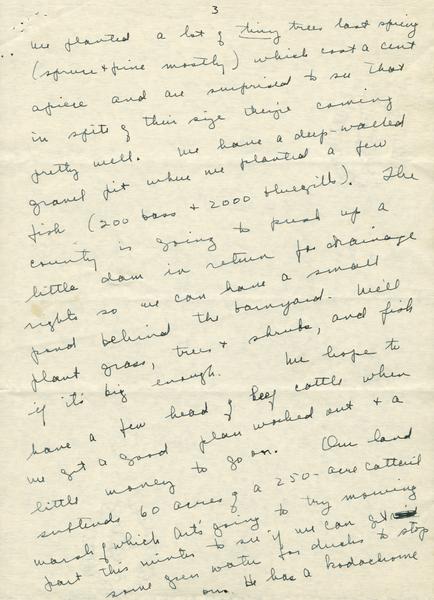 3
We planted a lot of tiny trees last spring
(spruce & pine mostly) which cost a cent
apiece and are surprised to see that
in spite of their size they're coming
pretty well. We have a deep-walled
gravel pit where we planted a few
fish (200 bass & 2000 bluegills). The
county is going to push up a
little dam in return for drainage
rights so we can have a small
pond behind the barnyard. We'll
plant grass, trees & shrubs, and fish
if it's big enough. We hope to
have a few head of beef cattle when
we get a good plan worked out & a
little money to go on. Our land
subtends 60 acres of a 250-acre cattail
marsh of which Art's going to try mowing
part this winter to see if we can get
some green water for ducks to stop
on. He has a kodachrome